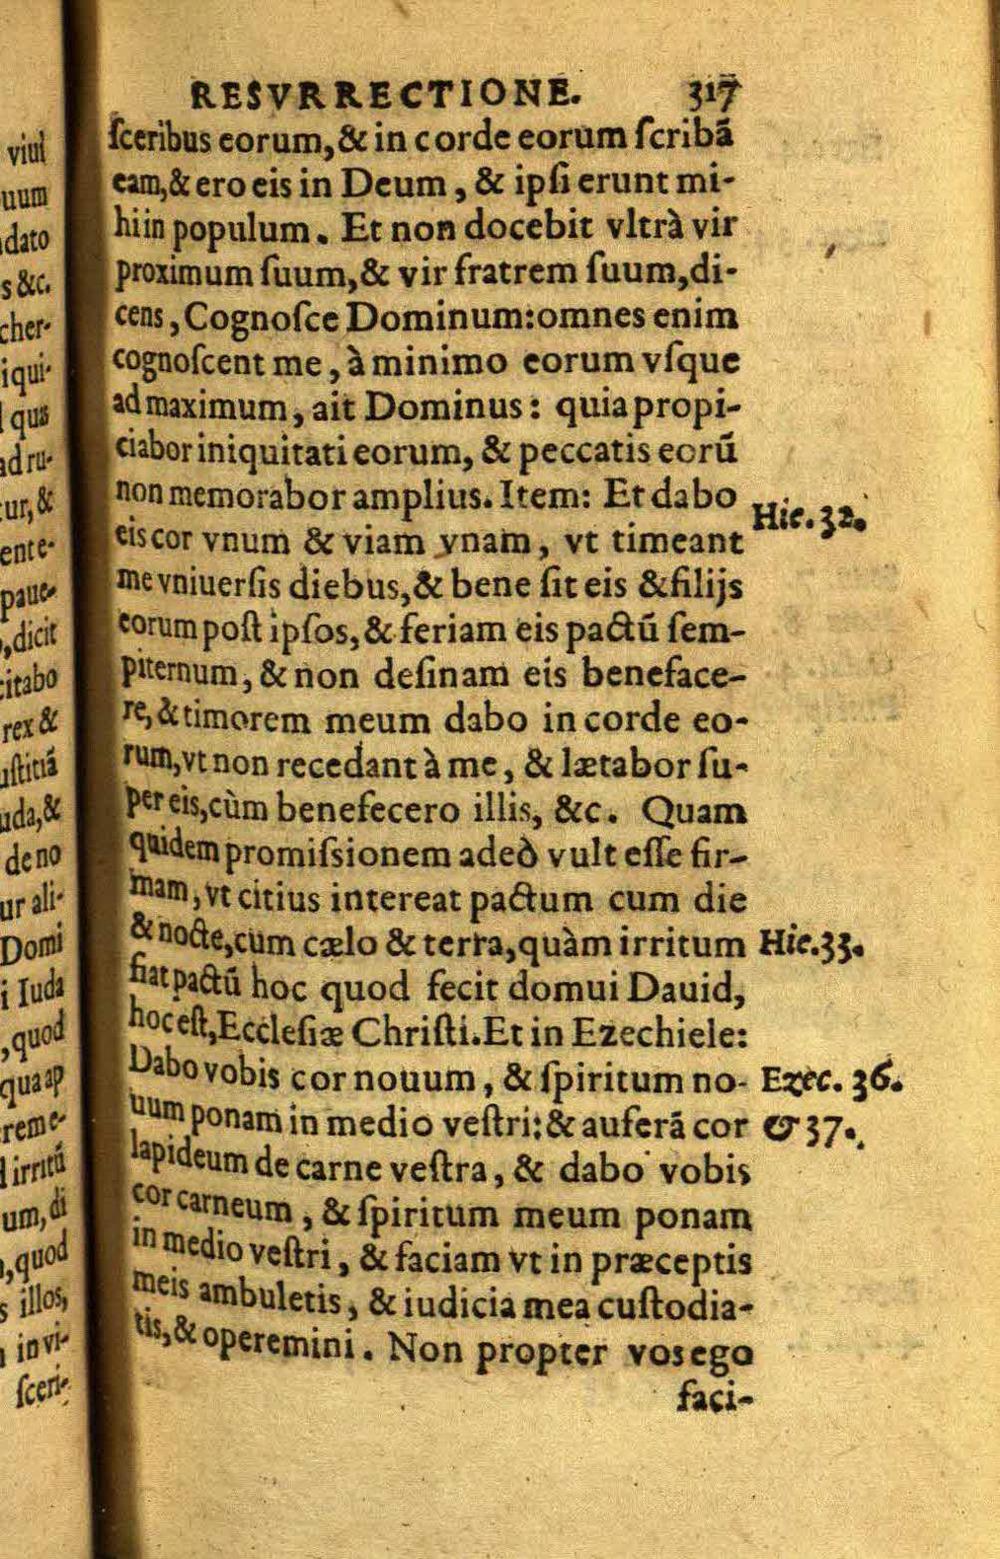 RESVRRECTIONE. 317
ſceribus eorum, & in corde eorum ſcribã
eam, & ero eis in Deum, & ipſi erunt mi-
hi in populum. Et non docebit vltrà vir
proximum ſuum, & vir fratrem ſuum, di-
cens, Cognoſce Dominum: omnes enim
cognoſcent me, à minimo eorum vſque
ad maximum, ait Dominus: quia propi-
ciabor iniquitati eorum, & peccatis eorũ
non memorabor amplius. Item: Et dabo
Hie. 32.
eis cor vnum & viam vnam, vt timeant
me vniuerſis diebus, & bene ſit eis & filijs
eorum poſt ipſos, & feriam eis pactũ ſem-
piternum, & non deſinam eis beneface-
re, & timorem meum dabo in corde eo-
rum, vt non recedant à me, & lætabor ſu-
per eis, cùm benefecero illis, &c. Quam
quidem promiſsionem adeò vult eſſe fir-
mam, vt citius intereat pactum cum die
& nocte, cum cælo & terra, quàm irritum
Hie. 33.
fiat pactũ hoc quod fecit domui Dauid,
hoc eſt, Eccleſiæ Chriſti. Et in Ezechiele:
Dabo vobis cor nouum, & ſpiritum no-
Ezec. 36.
uum ponam in medio veſtri: & auferã cor
& 37.
lapideum de carne veſtra, & dabo vobis
cor carneum, & ſpiritum meum ponam
in medio veſtri, & faciam vt in præceptis
meis ambuletis, & iudicia mea cuſtodia-
tis, & operemini. Non propter vos ego
faci-
viui
uum
dato
s &c.
cher-
iqui-
qua
ad ru-
ur, &
ente-
paue-
, dicit
citabo
rex &
uſtitiã
uda, &
de no
ur ali-
Domi
i Iuda
, quod
qua ap
reme-
irritũ
um, di
, quod
s illos,
in vi-
ſceri-